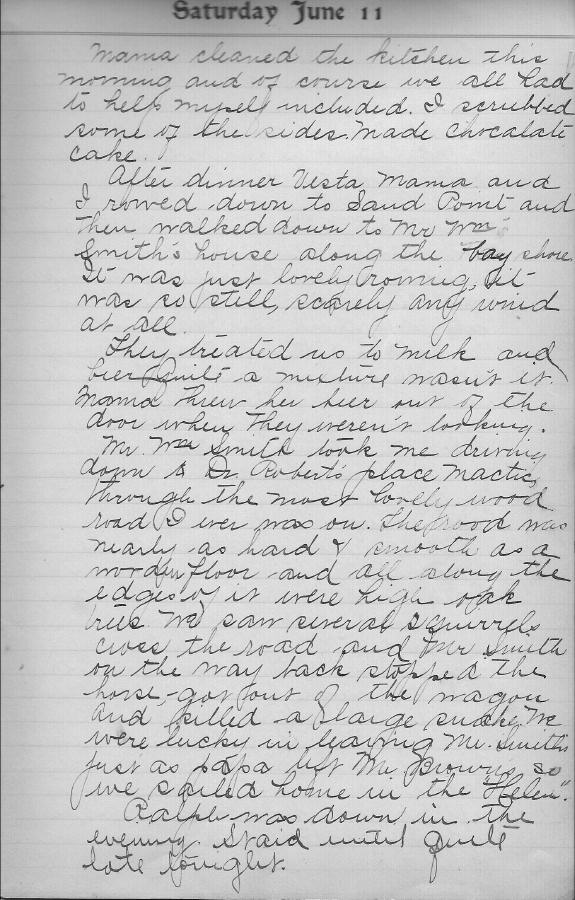 Saturday June 11
Mama cleaned the kitchen this
morning and of course we all had
to help myself included. I scrubbed
some of the sides. Made chocalate
cake.
After dinner Vesta, Mama and
I rowed down to Sand Point and
then walked down to Mr Wm
Smith's house along the bay shore.
It was just lovely rowing, it
was so still, scarely any wind
at all.
They treated us to milk and
beer Quite a mixture wasn't it.
Mama threw her beer out of the
door when they weren't looking.
Mr. Wm Smith took me driving
down to Dr. Robert's place
through the most lovely wood
road I ever was on. The road was
nearly as hard & smooth as a
wooden floor and all along the
edges of it were high oak
trees We saw several squirrels
cross the road and Mr Smith
on the way back stopped the
horse, got out of the wagon
and killed a large snake. We
were lucky in leaving Mr. Smith's
just as papa left Mr Brown's so
we sailed home in the "Helen".
Ralph was down in the
evening. Staid until quite
late tonight.